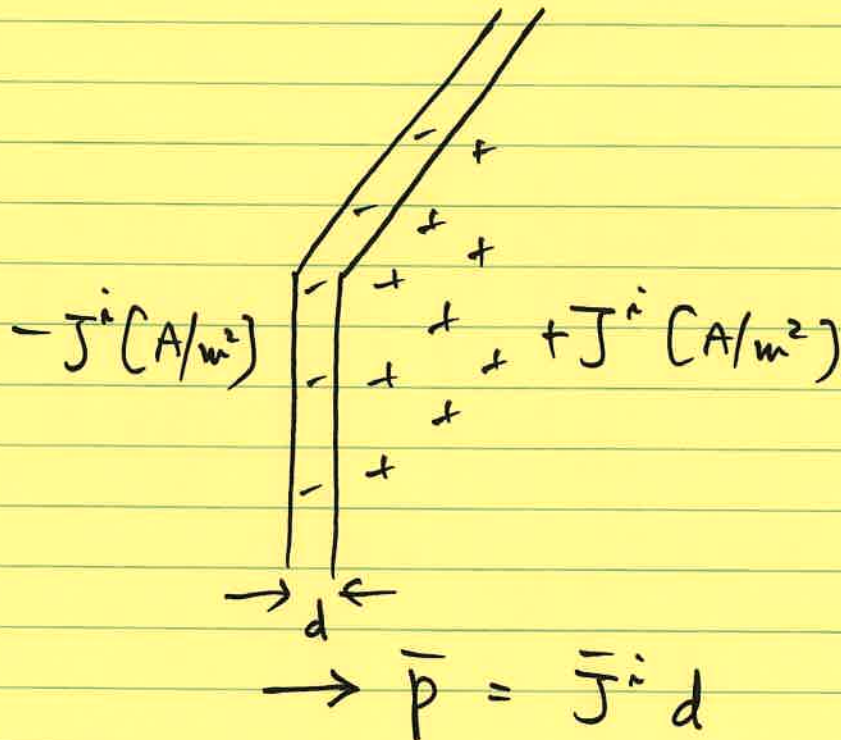 - Jⁱ (A/m²)
+ Jⁱ (A/m²)
→ d ←
→ p̄ = J̄ⁱ d